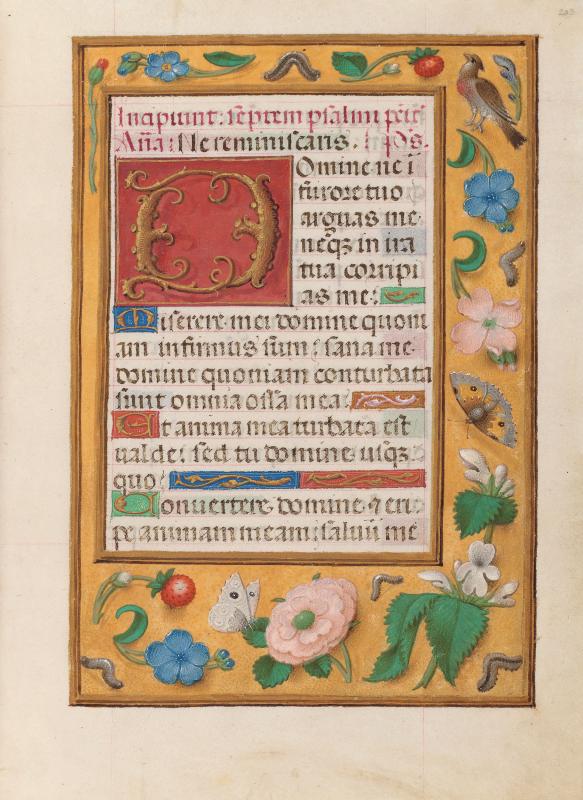 203
Incipiunt: septem psalmi pe͞ie͞
An͞a: Ne reminiscaris. Ps.
Domine ne i͞
furore tuo
arguas me
neq͛ in ira
tua corripi
as me:
Miserere mei domine quoni
am infirmus sum: sana me
domine quoniam conturbata
sunt omnia ossa mea:
Et anima mea turbata est
ualde: sed tu domine usq͛
quo:
Conuertere domine ⁊ eri
pe animam meam: saluu͞ me